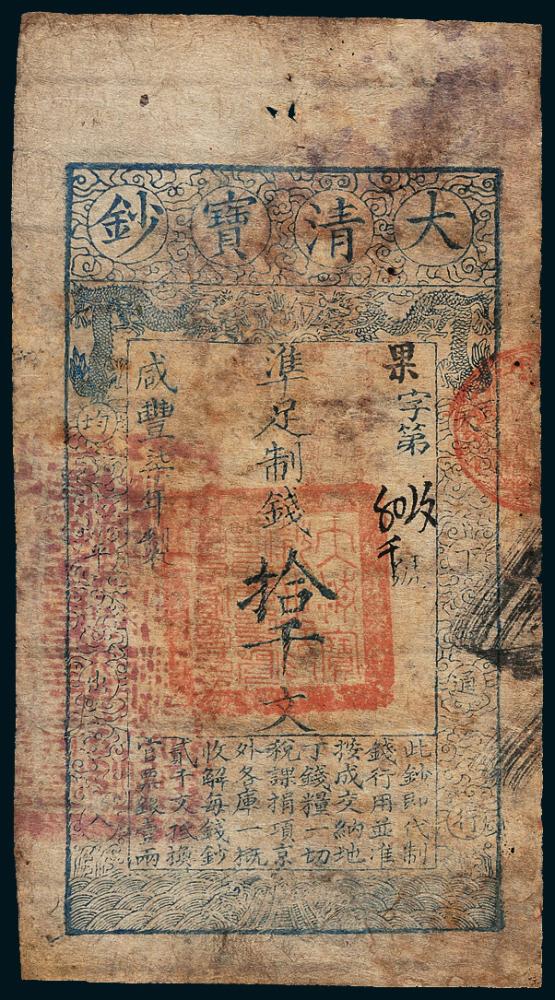 大清寶鈔
天下通行
果字第號
準足制錢拾千文
咸豐柒年製
均平出入
此鈔即代制
錢行用並准
按成交納地
丁錢糧一切
稅課捐項京
外各庫一概
收解每錢鈔
貳千文抵換
官票銀壹兩